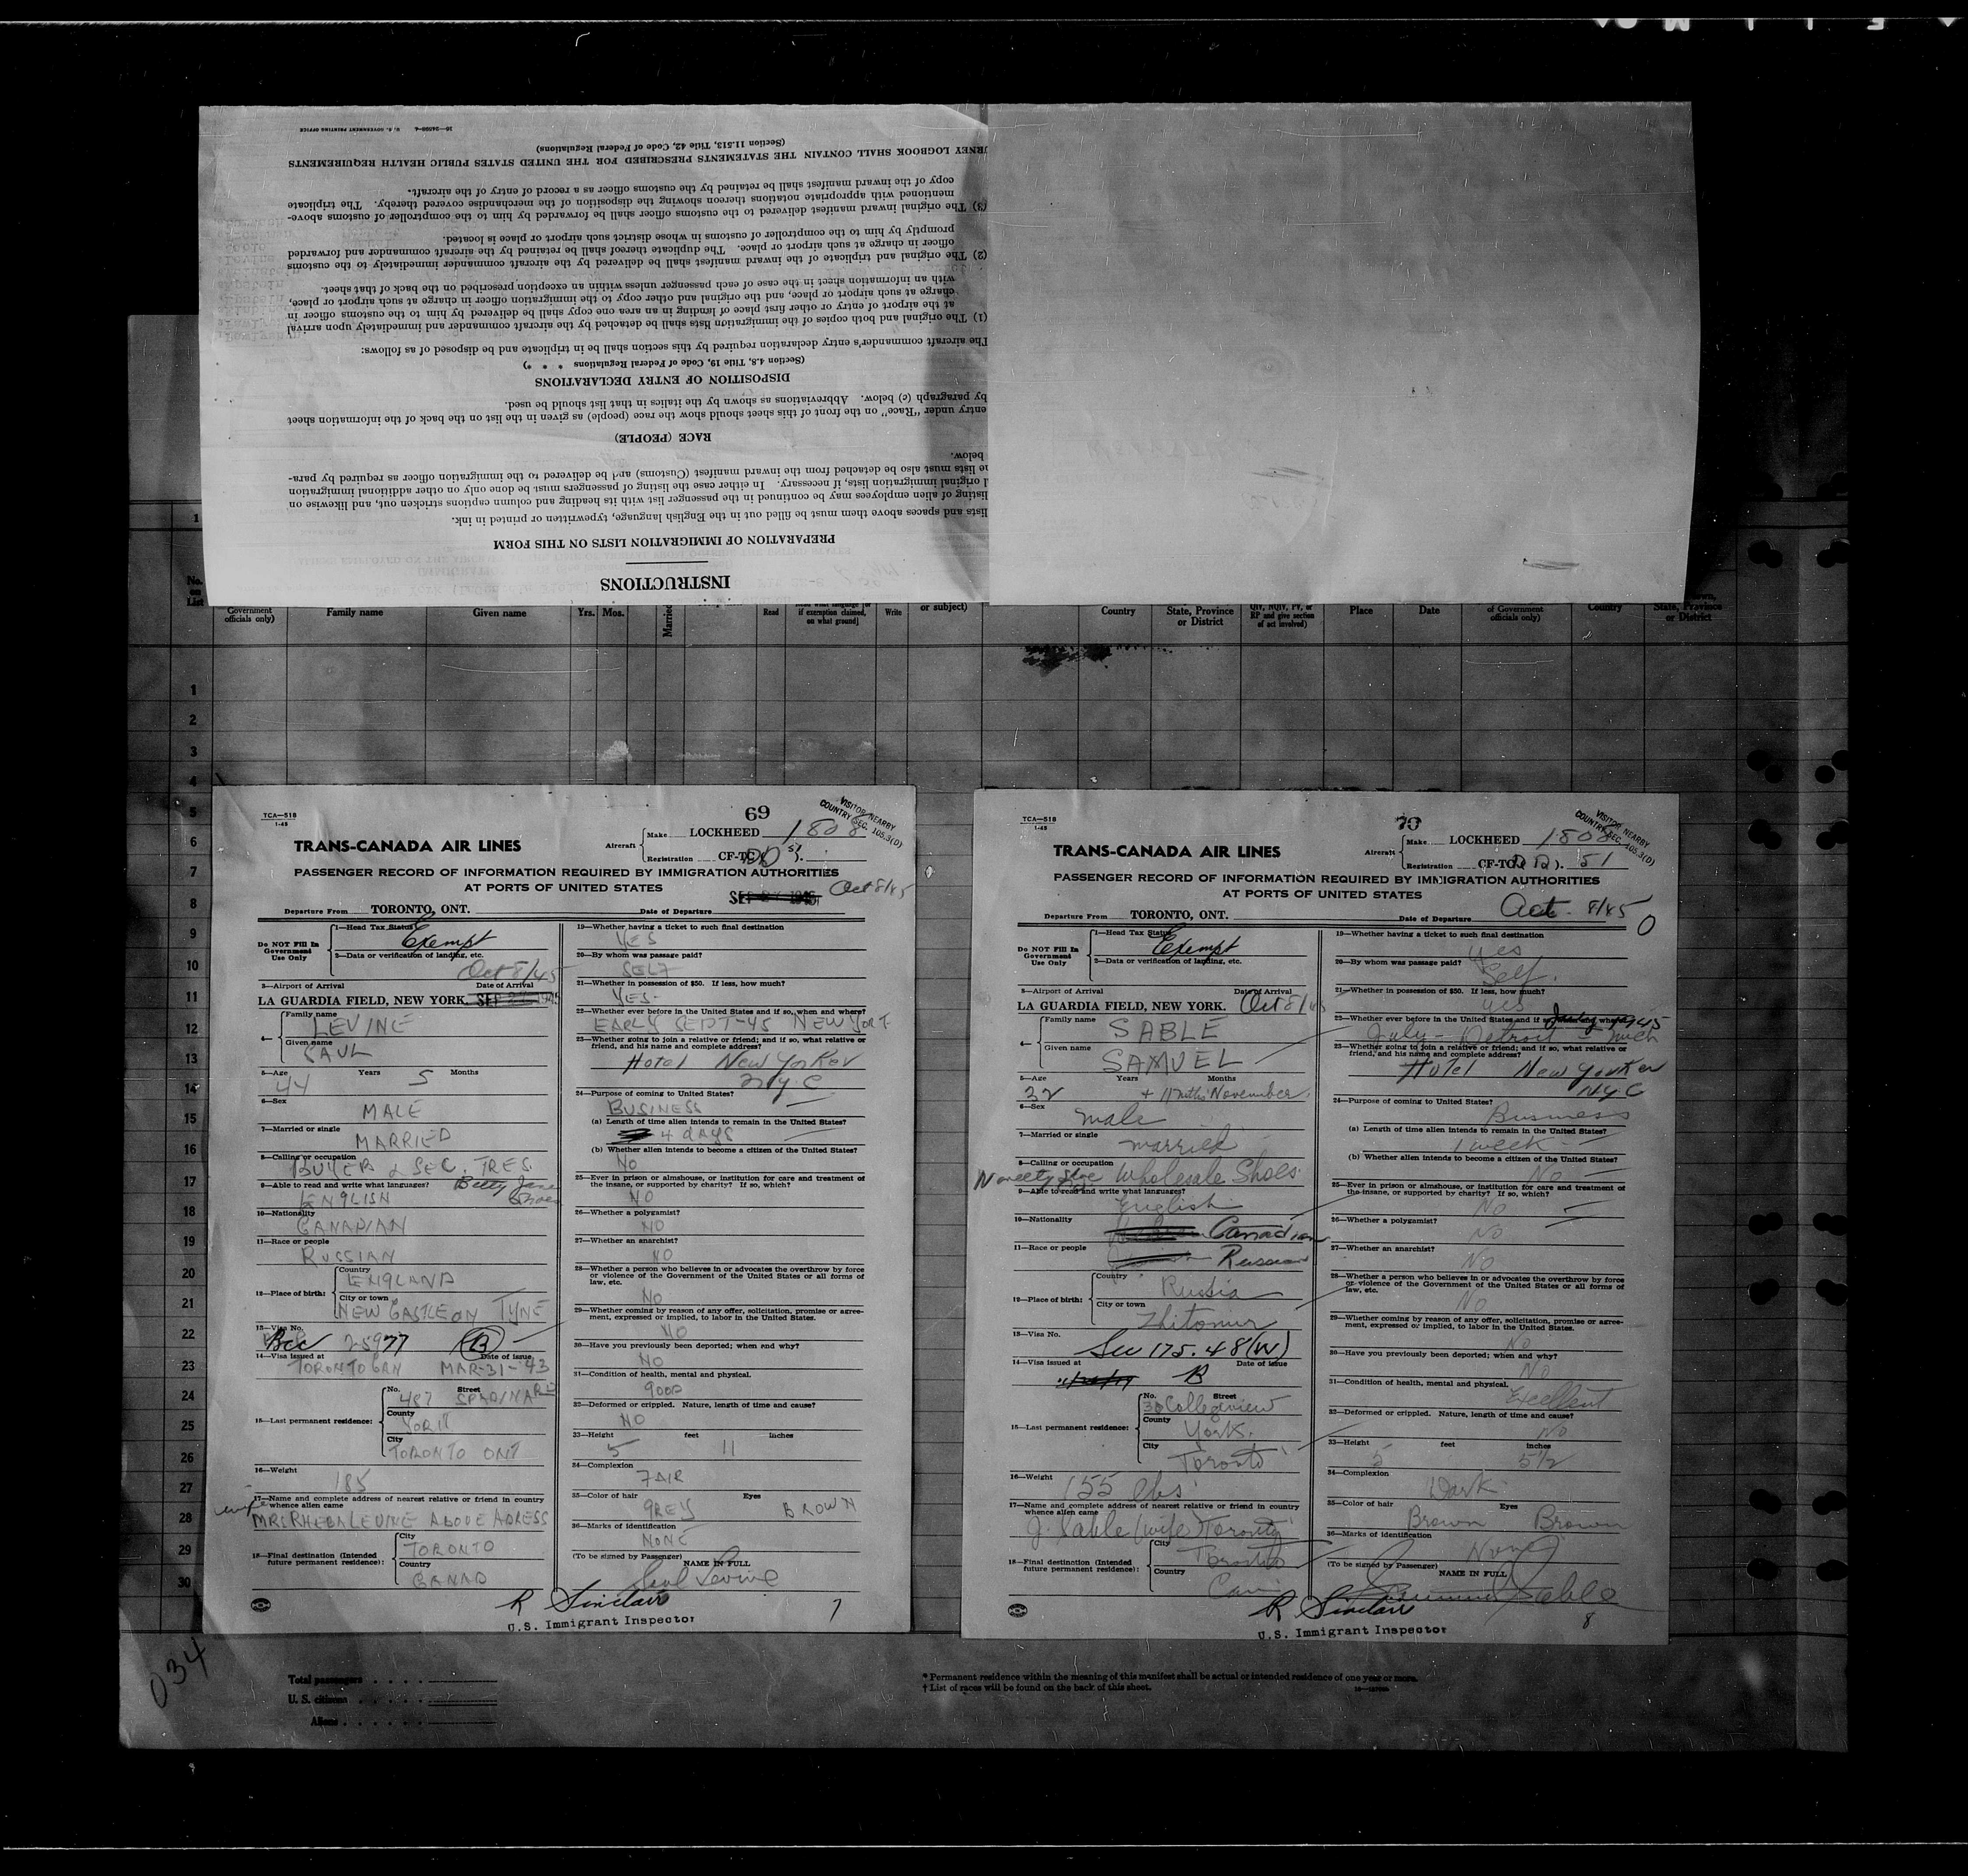 INSTRUCTIONS
PREPARATION OF IMMIGRATION LISTS ON THIS FORM
lists and spaces above them must be filled out in the English language, typewritten or printed in ink.
listing of alien employees may be continued in the passenger list with its heading and column captions stricken out, and likewise on
original immigration lists, if necessary. In either case the listing of passengers must be done only on other additional immigration
lists must also be detached from the inward manifest (Customs) and be delivered to the immigration officer as required by para-
below.
RACE (PEOPLE)
entry under "Race" on the front of this sheet should show the race (people) as given in the list on the back of the information sheet
by paragraph (c) below. Abbreviations as shown by the italics in that list should be used.
DISPOSITION OF ENTRY DECLARATIONS
(Section 4.8, Title 19, Code of Federal Regulations * * *)
The aircraft commander's entry declaration required by this section shall be in triplicate and be disposed of as follows:
(1) The original and both copies of the immigration lists shall be detached by the aircraft commander and immediately upon arrival
at the airport of entry or other first place of landing in an area one copy shall be delivered by him to the customs officer in
charge at such airport or place, and the original and other copy to the immigration officer in charge at such airport or place,
with an information sheet in the case of each passenger unless within an exception prescribed on the back of that sheet.
(2) The original and triplicate of the inward manifest shall be delivered by the aircraft commander immediately to the customs
officer in charge at such airport or place. The duplicate thereof shall be retained by the aircraft commander and forwarded
promptly by him to the comptroller of customs in whose district such airport or place is located.
(3) The original inward manifest delivered to the customs officer shall be forwarded by him to the comptroller of customs above-
mentioned with appropriate notations thereon showing the disposition of the merchandise covered thereby. The triplicate
copy of the inward manifest shall be retained by the customs officer as a record of entry of the aircraft.
LOGBOOK SHALL CONTAIN THE STATEMENTS PRESCRIBED FOR THE UNITED STATES PUBLIC HEALTH REQUIREMENTS
(Section 11.513, Title 42, Code of Federal Regulations)
U. S. GOVERNMENT PRINTING OFFICE
1
No. on List
Government officials only)
Family name
Given name
Yrs. Mos.
Married
Read
if exemption claimed, on what ground]
Write
or subject)
Country
State, Province or District
RP and give section of act involved)
Place
Date
of Government officials only)
Country
State, Province or District
1
2
3
4
5
6
7
8
9
10
11
12
13
14
15
16
17
18
19
20
21
22
23
24
25
26
27
28
29
30
TCA—518
1-45
69
VISITOR NEARBY
COUNTRY SEC. 105.3(D)
TRANS-CANADA AIR LINES
Aircraft
Make LOCKHEED 1808
Registration CF-TC DD 51 ).
PASSENGER RECORD OF INFORMATION REQUIRED BY IMMIGRATION AUTHORITIES
AT PORTS OF UNITED STATES
Oct 8/45
Departure From TORONTO, ONT.
Date of Departure
Do NOT Fill In Government Use Only
1—Head Tax Status Exempt
2—Data or verification of landing, etc.
3—Airport of Arrival
Date of Arrival Oct 8/45
LA GUARDIA FIELD, NEW YORK.
4—
Family name LEVINE
Given name SAUL
5—Age 44 Years 5 Months
6—Sex MALE
7—Married or single MARRIED
8—Calling or occupation BUYER & SEC. TRES.
Betty Jane Shoes
9—Able to read and write what languages? ENGLISH
10—Nationality CANADIAN
11—Race or people RUSSIAN
12—Place of birth:
Country ENGLAND
City or town NEW CASTLE ON TYNE
13—Visa No. 25977 (B)
14—Visa issued at TORONTO CAN Date of issue MAR-31-'43
15—Last permanent residence:
No. 487 Street SPADINA RD
County YORK
City TORONTO ONT
16—Weight 185
17—Name and complete address of nearest relative or friend in country whence alien came
wife
MRS RHEBA LEVINE ABOVE ADRESS
18—Final destination (Intended future permanent residence):
City TORONTO
Country CANAD
19—Whether having a ticket to such final destination
YES
20—By whom was passage paid?
SELF
21—Whether in possession of $50. If less, how much?
YES-
22—Whether ever before in the United States and if so, when and where?
EARLY SEPT-45 NEW YORK
23—Whether going to join a relative or friend; and if so, what relative or friend, and his name and complete address?
Hotel New Yorker
N.Y.C
24—Purpose of coming to United States?
BUSINESS
(a) Length of time alien intends to remain in the United States?
4 DAYS
(b) Whether alien intends to become a citizen of the United States?
NO
25—Ever in prison or almshouse, or institution for care and treatment of the insane, or supported by charity? If so, which?
NO
26—Whether a polygamist?
NO
27—Whether an anarchist?
NO
28—Whether a person who believes in or advocates the overthrow by force or violence of the Government of the United States or all forms of law, etc.
NO
29—Whether coming by reason of any offer, solicitation, promise or agreement, expressed or implied, to labor in the United States.
NO
30—Have you previously been deported; when and why?
NO
31—Condition of health, mental and physical.
GOOD
32—Deformed or crippled. Nature, length of time and cause?
NO
33—Height 5 feet 11 inches
34—Complexion
FAIR
35—Color of hair GREY Eyes BROWN
36—Marks of identification
NONE
(To be signed by Passenger) NAME IN FULL
Saul Levine
R Sinclair
U.S. Immigrant Inspector
7
TCA—518
1-45
70
VISITOR NEARBY
COUNTRY SEC. 105.3(D)
TRANS-CANADA AIR LINES
Aircraft
Make LOCKHEED 1808
Registration CF-TC DD ). 51
PASSENGER RECORD OF INFORMATION REQUIRED BY IMMIGRATION AUTHORITIES
AT PORTS OF UNITED STATES
Departure From TORONTO, ONT.
Date of Departure Oct. 8/45
0
Do NOT Fill In Government Use Only
1—Head Tax Status Exempt
2—Data or verification of landing, etc.
3—Airport of Arrival
Date of Arrival
LA GUARDIA FIELD, NEW YORK. Oct 8/45
4—
Family name SABLE
Given name SAMUEL
5—Age 32 Years Months + 11 mths November
6—Sex male
7—Married or single married
8—Calling or occupation Wholesale Shoes
Novelty Shoe
9—Able to read and write what languages? English
10—Nationality Canadian
11—Race or people Russian
12—Place of birth:
Country Russia
City or town Zhitomir
13—Visa No. Sec 175.48(W)
14—Visa issued at B Date of issue
15—Last permanent residence:
No. 30 Street Collegeview
County York.
City Toronto
16—Weight 155 lbs
17—Name and complete address of nearest relative or friend in country whence alien came
J. Sable (wife) Toronto
18—Final destination (Intended future permanent residence):
City Toronto
Country Can
19—Whether having a ticket to such final destination
yes
20—By whom was passage paid?
Self.
21—Whether in possession of $50. If less, how much?
yes
22—Whether ever before in the United States and if so, when and where?
1945
July - Detroit - Mich
23—Whether going to join a relative or friend; and if so, what relative or friend, and his name and complete address?
Hotel New Yorker
N.Y.C
24—Purpose of coming to United States?
Business
(a) Length of time alien intends to remain in the United States?
1 week
(b) Whether alien intends to become a citizen of the United States?
No
25—Ever in prison or almshouse, or institution for care and treatment of the insane, or supported by charity? If so, which?
No
26—Whether a polygamist?
No
27—Whether an anarchist?
No
28—Whether a person who believes in or advocates the overthrow by force or violence of the Government of the United States or all forms of law, etc.
No
29—Whether coming by reason of any offer, solicitation, promise or agreement, expressed or implied, to labor in the United States.
No
30—Have you previously been deported; when and why?
No
31—Condition of health, mental and physical.
Excellent
32—Deformed or crippled. Nature, length of time and cause?
No
33—Height 5 feet 5½ inches
34—Complexion
Dark
35—Color of hair Brown Eyes Brown
36—Marks of identification
None
(To be signed by Passenger) NAME IN FULL
Samuel Sable
R Sinclair
U.S. Immigrant Inspector
8
034
Total passengers
U. S. citizens
Aliens
* Permanent residence within the meaning of this manifest shall be actual or intended residence of one year or more.
† List of races will be found on the back of this sheet.